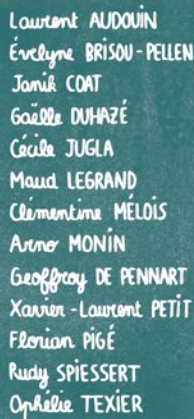 Laurent AUDOUIN
Évelyne BRISOU-PELLEN
Janik COAT
Gaëlle DUHAZÉ
Cécile JUGLA
Maud LEGRAND
Clémentine MÉLOIS
Arno MONIN
Geoffroy DE PENNART
Xavier-Laurent PETIT
Florian PIGÉ
Rudy SPIESSERT
Ophélie TEXIER